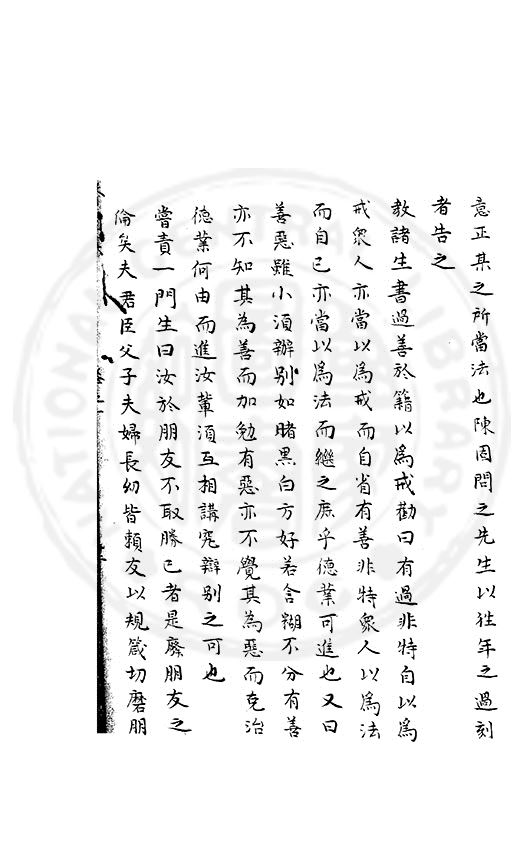 意正某之所當法也陳固問之先生以往年之過刻
者告之
教諸生書過善於籍以爲戒勸曰有過非特自以爲
戒衆人亦當以爲戒而自省有善非特衆人以爲法
而自己亦當以爲法而繼之庶乎德業可進也又曰
善惡雖小須辨别如睹黑白方好若含糊不分有善
亦不知其為善而加勉有惡亦不覺其為惡而克治
德業何由而進汝輩須互相講究辯别之可也
嘗責一門生曰汝於朋友不取勝己者是廢朋友之
倫矣夫君臣父子夫婦長幼皆賴友以規箴切磨朋